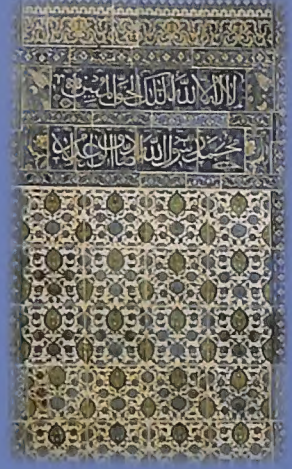 لا اله الا الله الملك الحق المبين
محمد رسول الله صادق الوعد الامين